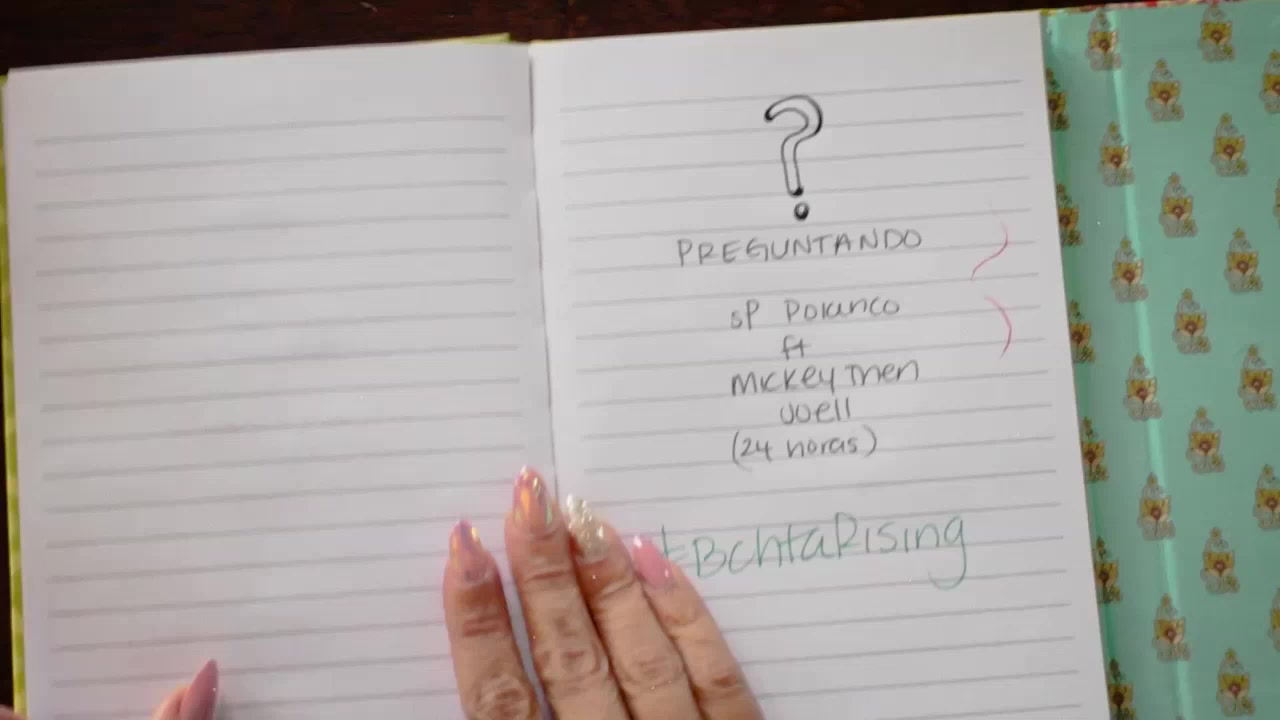 ?
PREGUNTANDO
SP Polanco
ft
Mickey Then
Joell
(24 horas)
#BchtaRising